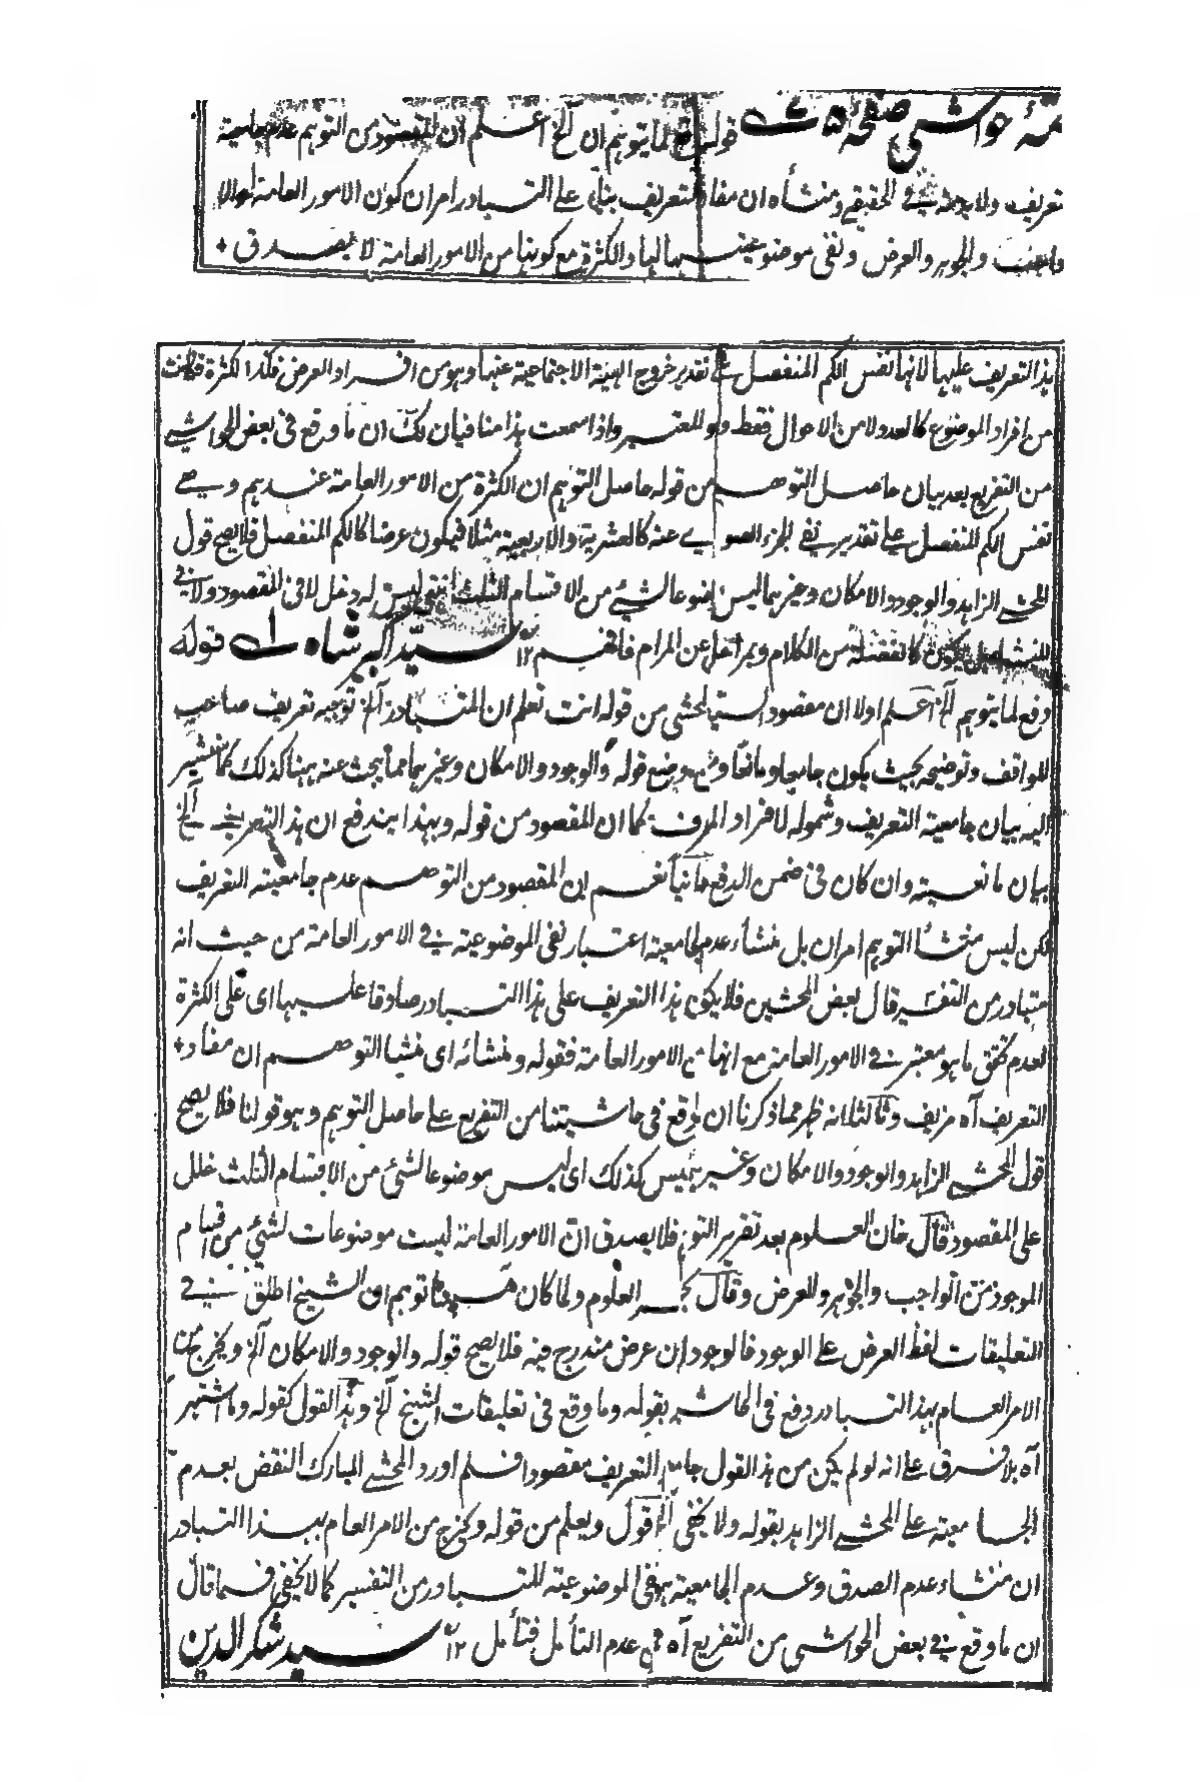 تتمۂ حواشی صفحۂ ۵ قوله دفع لما يتوهم ان آلخ اعلم ان المقصود من التوهم عدم جامعية
تعريف ولا يوجد في الحقيقي ومنشأه ان مفاد التعريف بناءً على التبادر امران كون الامور العامة احوالا
والجوهر والعرض ونفى موضوعيتها لها والكثرة مع كونها من الامور العامة لا يصدق +
هذا التعريف عليها لانها نفس الكم المنفصل على تقدير خروج الهيئة الاجتماعية عنها وهو من افراد العرض فكذا الكثرة فكانت
من افراد الموضوع كالعدد لا من الاحوال فقط واذا سمعت هذا منا فبان لك ان ما وقع فى بعض الحواشي
من التفريع بعد بيان حاصل التوهم من قوله حاصل التوهم ان الكثرة من الامور العامة عندهم وهي
نفس الكم المنفصل على تقدير نفي الجزء الصوري عنه كالعشرية والاربعية مثلا فيكون عرضا كالكم المنفصل فلا يصح قول
المحشي الزاهد والوجود والامكان وغيرهما ليس موضوعا لشيئ من الاقسام الثلث انتهى ليس له دخل لا في المقصود ولا في
المنشأ بل يكون كالفضلة من الكلام وبمراحل عن المرام فافهم ١٢ سيد اكبر شاه قوله
دفع لما يتوهم آلخ اعلم اولا ان مقصود السيد المحشى من قوله انت تعلم ان المتبادر آلخ توجيه تعريف صاحب
المواقف وتوضيحه بحيث يكون جامعا ومانعا وضع قوله والوجود والامكان وغيرهما مما يبحث عنه ههنا كذلك كما سنشير
اليه بيان جامعية التعريف وشموله لافراد المعرف كما ان المقصود من قوله وبهذا يندفع ان هذا التعريف آلخ
بيان مانعيته وان كان فى ضمن الدفع وثانيا نعم ان المقصود من التوهم عدم جامعيته التعريف
لكن ليس منشأ التوهم امران بل منشاء عدم الجامعية اعتبار نفى الموضوعية فى الامور العامة من حيث انه
متبادر من التفسير قال بعض المحشين فلا يكون هذا التعريف على هذا التبادر صادقا عليها اى على الكثرة
لعدم تحقق ما هو معتبر فى الامور العامة مع انها من الامور العامة فقوله ومنشائه اى منشأ التوهم ان مفاد +
التعريف آه مزيف وثالثا انه ظهر مما ذكرنا ان ما وقع فى حاشيتنا من التفريع على حاصل التوهم وهو قولنا فلا يصح
قول المحشي الزاهد والوجود والامكان وغيرهما ليس كذلك اى ليس موضوعا لشئ من الاقسام الثلث خلل
على المقصود قال خان العلوم بعد تقرير التوهم فلا يصدق ان الامور العامة ليست موضوعات لشيئ من اقسام
الموجود من الواجب والجوهر والعرض وقال بحر العلوم ولما كان توهم ان الشيخ اطلق في
التعليقات لفظ العرض على الوجود فالوجود ان عرض مندرج فيه فلا يصح قوله والوجود والامكان آلخ ويخرج من
الامر العام بهذا التبادر دفع فى الحاشيه بقوله وما وقع فى تعليقات الشيخ آلخ وهذا القول كقوله وما اشتهر
آه بلا فرق على انه لو لم يكن من هذا القول جامعية التعريف مقصودا فلم اورد المحشي المبارك النقض بعدم
الجامعية على المحشي الزاهد بقوله ولا يخفى آلخ اقول ويعلم من قوله ويخرج من الامر العام بهذا التبادر
ان منشاء عدم الصدق وعدم الجامعية هو نفى الموضوعية المتبادر من التفسير كما لا يخفى فما قال
ان ما وقع فى بعض الحواشى من التفريع آه من عدم التأمل فتأمل ١٢ سيد شكر الدين